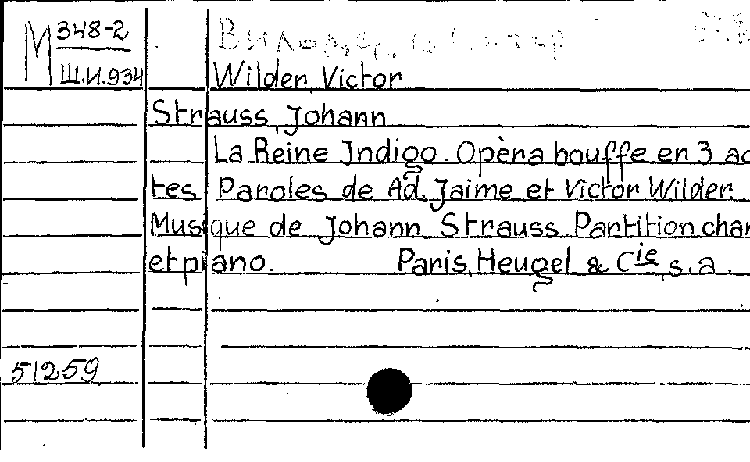 M 348-2
Ш.И.934
Вильдер,
Wilder, Victor
Strauss, Johann
La Reine Indigo. Opèra bouffe en 3 ac
tes Paroles de Ad. Jaime et Victor Wilder.
Musique de Johann Strauss. Partition chan
et piano. Paris, Heugel & Cie, s.a
51259